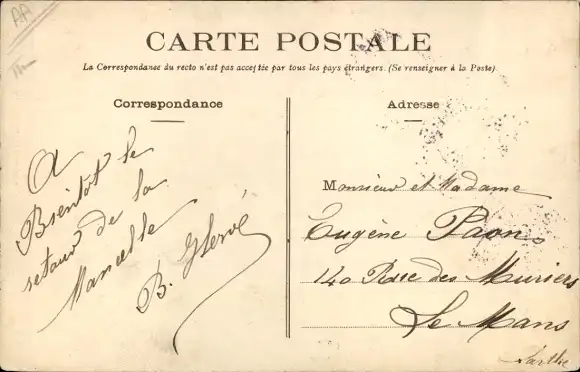 AA
CARTE POSTALE
La Correspondance du recto n'est pas acceptée par tous les pays étrangers. (Se renseigner à la Poste)
Correspondance
A
Bientot le
retour de la
Mancelle
B. Hervé
Adresse
Monsieur et Madame
Eugène Paon
140 Rue des Muriers
Le Mans
Sarthe